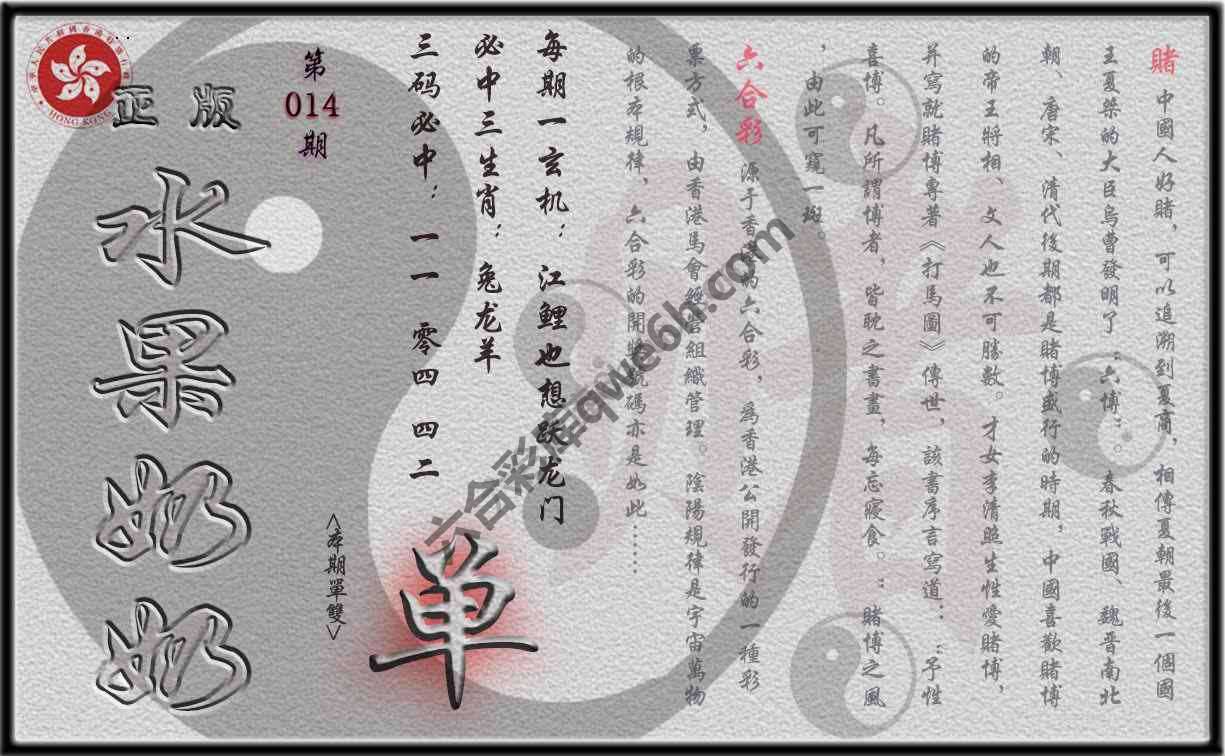 賭 中國人好賭，可以追溯到夏商，相傳夏朝最後一個國
王夏桀的大臣烏曹發明了：六博：。春秋戰國、魏晋南北
朝、唐宋、清代後期都是賭博盛行的時期，中國喜歡賭博
的帝王將相、文人也不可勝數。才女李清照生性愛賭博，
并寫就賭博專著《打馬圖》傳世，該書序言寫道：：予性
喜博。凡所謂博者，皆耽之書畫，每忘寢食。：賭博之風
，由此可窺一斑。
六合彩 源于香港的六合彩，為香港公開發行的一種彩
票方式，由香港馬會經營組織管理。陰陽規律是宇宙萬物
的根本規律、六合彩的開獎號碼亦是如此……
每期一玄机：江鲤也想跃龙门
必中三生肖：兔龙羊
三码必中：一一 零四 四二
第
014
期
正版
水果奶奶
<本期單雙>
单
六合彩庫qwe6h.com
HONG KONG